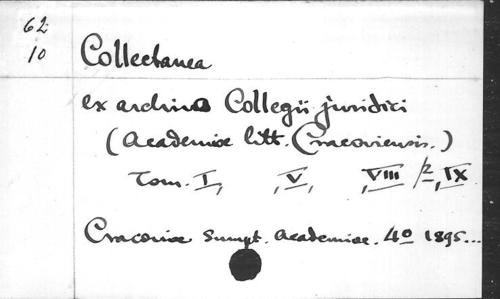 62
10
Collectanea
ex archivo Collegii juridici
(Academiae litt. Cracoviensis.)
Tom. I, , V, , VIII/2, IX
Cracoviae Sumpt. Academiae. 4o 1895...